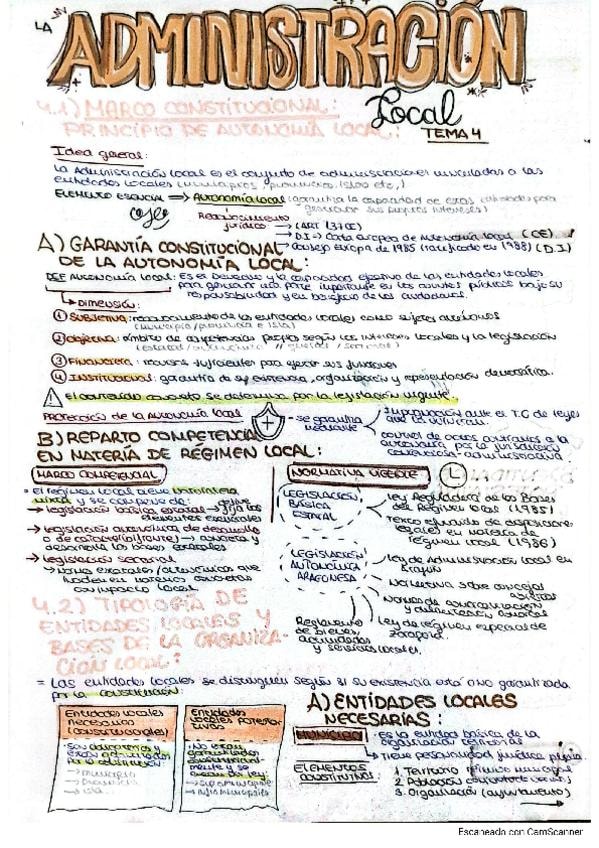 LA
ADMINISTRACIÓN
Local
TEMA 4
4.1) MARCO CONSTITUCIONAL:
PRINCIPIO DE AUTONOMÍA LOCAL:
Idea general:
La Administración local es el conjunto de administraciones vinculadas a las
entidades locales (municipios, provincias, islas etc,)
ELEMENTO ESENCIAL → Autonomía local: garantiza la capacidad de estas entidades para
gestionar sus propios intereses)
Reconocimiento
jurídico → (ART 137CE)
→ D.I → Carta europea de autonomía local (CE)
→ Consejo Europa de 1985 (ratificado en 1988) (D.I)
A) GARANTÍA CONSTITUCIONAL
DE LA AUTONOMÍA LOCAL:
DEF Autonomía local: Es el derecho y la capacidad efectiva de las entidades locales
para gestionar una parte importante en los asuntos públicos bajo su
responsabilidad y en beneficio de los ciudadanos.
→ Dimensión:
① Subjetiva: reconocimiento de las entidades locales como sujetos autónomos
(municipio/provincia e isla)
② Objetiva: ámbito de competencias propias según los intereses locales y la legislación
③ Financiera: recursos suficientes para ejercer sus funciones
④ Institucional: garantía de su existencia, organización y representación democrática.
El contenido concreto se determina por la legislación vigente.
PROTECCIÓN DE LA AUTONOMÍA LOCAL
- se garantiza
mediante
impugnación ante el T.C de leyes
que la vulneran.
control de actos contrarios a la
autonomía por la jurisdicción
contencioso-administrativa
B) REPARTO COMPETENCIAL
EN MATERIA DE RÉGIMEN LOCAL:
MARCO COMPETENCIAL
El régimen local tiene naturaleza
y se compone de:
→ legislación básica estatal → fija los
elementos esenciales
→ legislación autonómica de desarrollo
→ concreta y
desarrolla las bases estatales
→ legislación sectorial
↳ normas estatales/autonómicas que
inciden en materias concretas
con impacto local
NORMATIVA VIGENTE
LEGISLACIÓN
BÁSICA
ESTATAL
Ley Reguladora de las Bases
del Régimen local (1985)
Texto refundido de disposiciones
legales en materia de
régimen local (1986)
LEGISLACIÓN
AUTONÓMICA
ARAGONESA
Ley de Administración Local en
Aragón
Normativa sobre concejos
abiertos
Normas de comarcalización
Ley de régimen especial de
Zaragoza.
Reglamento
de bienes,
actividades
y servicios locales.
4.2) TIPOLOGÍA DE
ENTIDADES LOCALES Y
BASES DE LA ORGANIZA-
CIÓN LOCAL:
= Las entidades locales se distinguen según si su existencia está o no garantizada
por la constitución:
Entidades locales
necesarias
(constitucionales)
- Son autónomas y
están garantizadas
por la constitución:
→ municipio
→ provincia
→ isla
Entidades
locales potesta-
tivas
- No están
garantizadas
constitucional-
mente y se
crean por ley:
→ Supramunicipales
→ Inframunicipales
A) ENTIDADES LOCALES
NECESARIAS:
MUNICIPIO
: Es la entidad básica de la
organización territorial
↳ Tiene personalidad jurídica propia.
ELEMENTOS
CONSTITUTIVOS:
1. Territorio (término municipal)
2. Población
3. Organización (ayuntamiento)
Escaneado con CamScanner